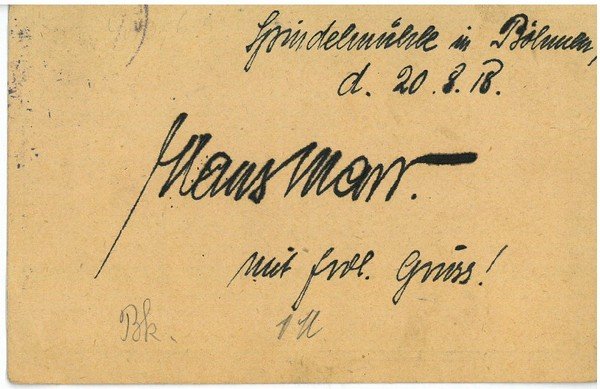 Spindelmühle in Böhmen,
d. 20.8.18.
Hans Marr.
mit frdl. Gruss!
Bk.